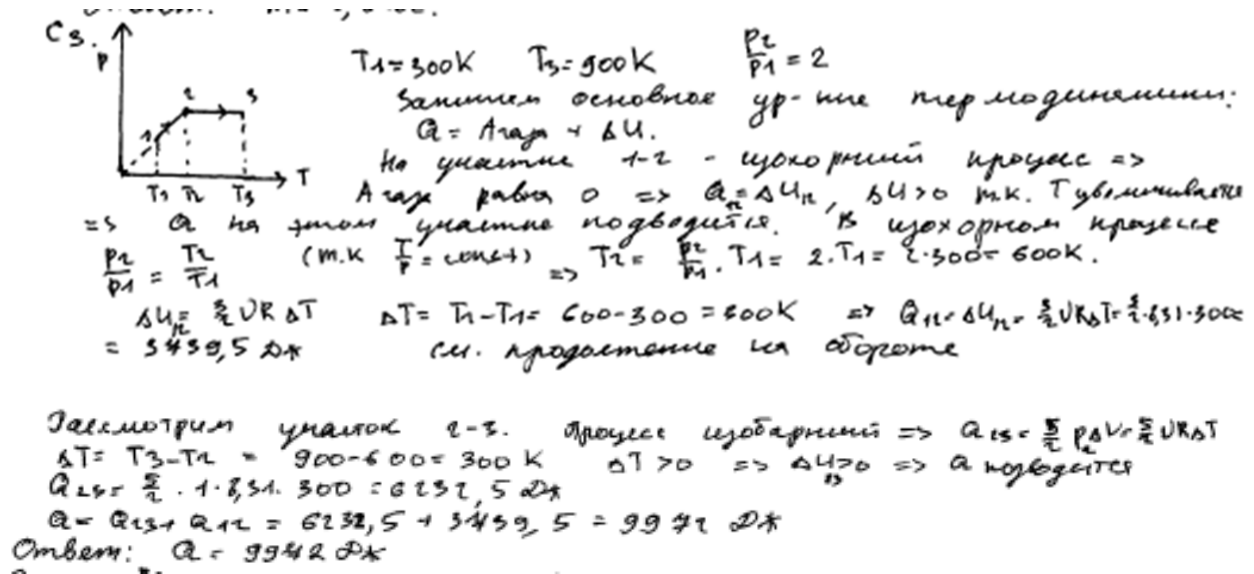 С3.
p
1 2 3
T₁ T₂ T₃ T
T₁=300K T₃=900K p₂/p₁ = 2
Запишем основное ур-ние термодинамики:
Q = Aгаза + ΔU.
На участке 1-2 - изохорный процесс =>
Aгаза равна 0 => Q₁₂=ΔU₁₂, ΔU>0 т.к. T увеличивается
=> Q на этом участке подводится. В изохорном процессе
p₂/p₁ = T₂/T₁ (т.к T/p = const) => T₂ = p₂/p₁ · T₁ = 2·T₁ = 2·300 = 600K.
ΔU₁₂ = 3/2 υRΔT ΔT = T₂-T₁ = 600-300 = 300K => Q₁₂=ΔU₁₂= 3/2 υRΔT= 3/2·8,31·300=
= 3739,5 Дж см. продолжение на обороте
Рассмотрим участок 2-3. Процесс изобарный => Q₂₃= 5/2 p₂ΔV= 5/2 υRΔT
ΔT= T₃-T₂ = 900-600= 300 K ΔT >0 => ΔU₂₃>0 => Q подводится
Q₂₃= 5/2 · 1·8,31· 300 = 6232,5 Дж
Q= Q₂₃+ Q₁₂ = 6232,5 + 3739,5 = 9972 Дж
Ответ: Q = 9972 Дж